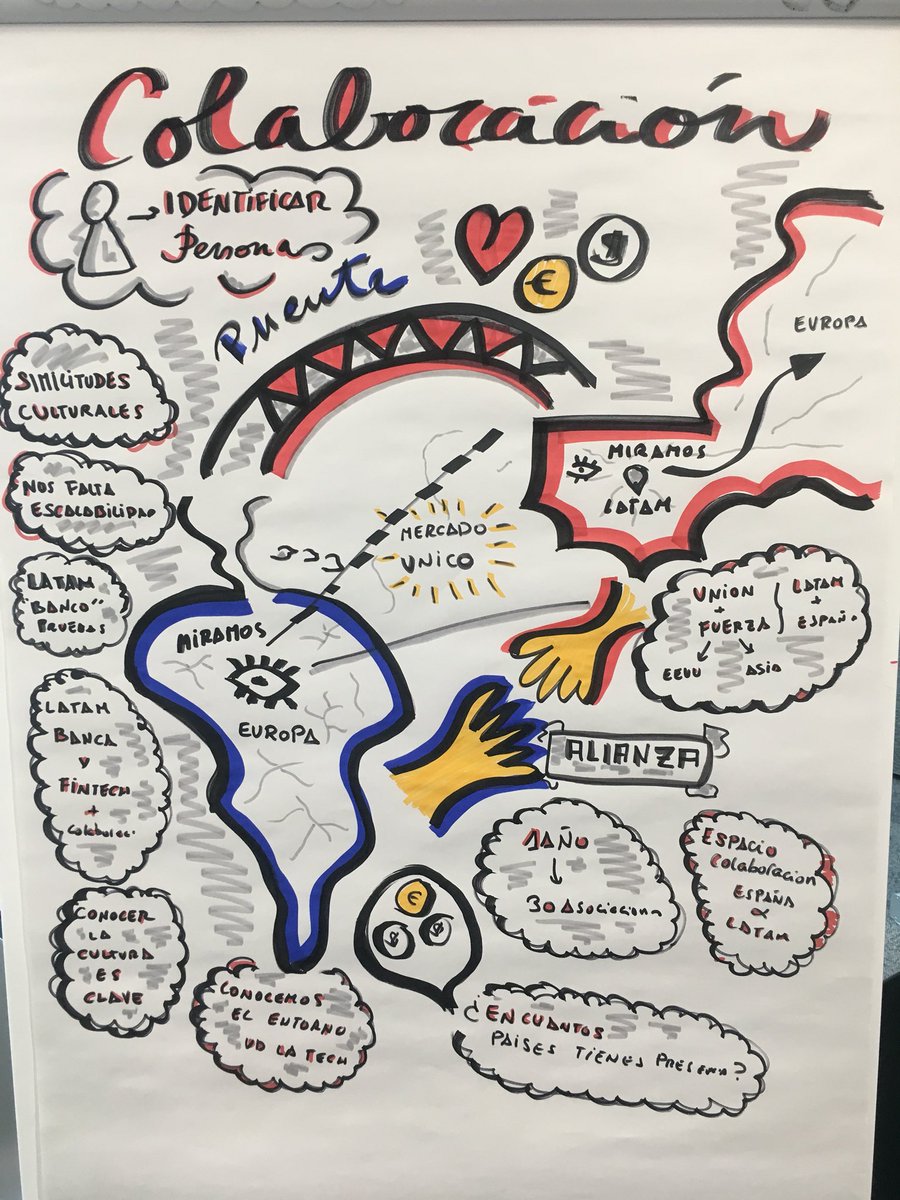 Colaboración
IDENTIFICAR
Personas
Puente
€
EUROPA
SIMILITUDES
CULTURALES
MIRAMOS
LATAM
NOS FALTA
ESCALABILIDAD
MERCADO
UNICO
LATAM
"BANCO"
PRUEBAS
UNION
+
FUERZA
EEUU
ASIA
LATAM
+
ESPAÑA
MIRAMOS
EUROPA
LATAM
BANCA
Y
FINTECH
+
Colaborac.
ALIANZA
1 AÑO
30 Asociacion
ESPACIO
Colaboracion
ESPAÑA
LATAM
€
$
$
CONOCER
LA
CULTURA
ES
CLAVE
CONOCEMOS
EL ENTORNO
UD LA TECH
¿EN CUANTOS
PAISES TIENES PRESENA?